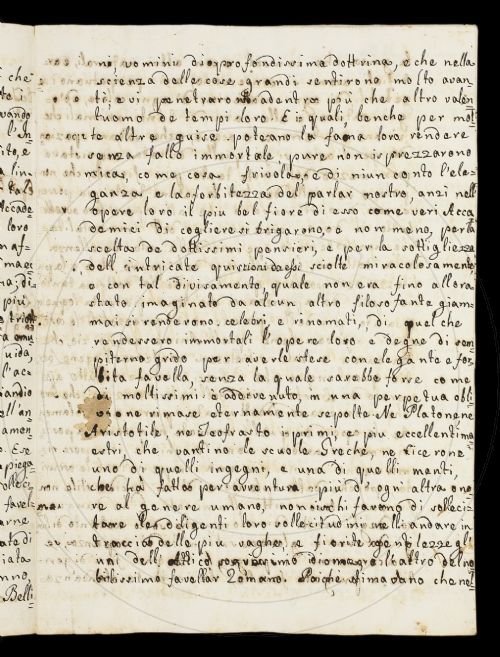 no, vomini di profondissima dottrina, e che nella
scienza delle cose grandi sentirono molto avan=
ti, e vi penetrarono adentro più che altro valen=
tuomo de tempi loro E i quali, benche per mol
te altre guise potevano la fama loro rendere
senza fallo immortale, pure non isprezzarono
mica, come cosa frivola, e di niun conto l'ele=
ganza e la forbitezza del parlar nostro, anzi nell
opere loro il più bel fiore di esso come veri Acca
demici di cogliere si brigarono, e non meno, per la
scelta de dottissimi pensieri, e per la sottigliezza
dell intricate quistioni da essi sciolte miracolosamente
e con tal divisamento, quale non era fino allora
stato imaginato da alcun altro filosofante giam=
mai si renderono celebri e rinomati, di quel che
rendessero immortali l opere loro e degne di sem
piterno grido per averle stese con elegante e for
bita favella, senza la quale sarebbe forse come
di moltissimi è addevenuto, in una perpetua obli
vione rimase eternamente sepolte Ne Platone, ne
Aristotile, ne Teofrasto i primi e più eccellenti ma
estri, che vantino le scuole Greche, ne Cicerone
uno di quelli ingegni, e una di quelli menti,
che ha fatto per avventura più di ogni altra ono=
re al genere umano, non ischifarono di solleci=
tare le diligenti loro sollecitudini nell andare in
traccia delle più vaghe, e fiorite gentilezze gl
uni dell Attico l'altro del no
bilissimo favellar Romano. Poiche stimavano che no
che
te i
vando
li In
ito, e
a lin=
tale
Accade
loro
n af=
maes
na, di
più
uida,
l'ac=
landio
ell'an
amen
o. E se
piega
olle ci
favel
arne
ata di
iata
nno,
Belli